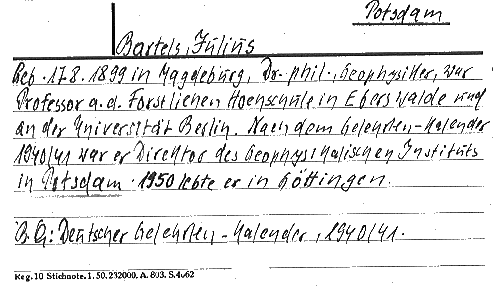 Potsdam
Bartels, Julius
Geb. 17.8.1899 in Magdeburg, Dr. phil., Geophysiker, war
Professor a.d. Forstlichen Hochschule in Eberswalde und
an der Universität Berlin. Nach dem Gelehrten-Kalender
1940/41 war er Direktor des Geophysikalischen Instituts
in Potsdam. 1950 lebte er in Göttingen.
Deutscher Gelehrten-Kalender, 1940/41.
Reg. 10 Stichnote. 1. 50. 232000. A. 803. S. 4662